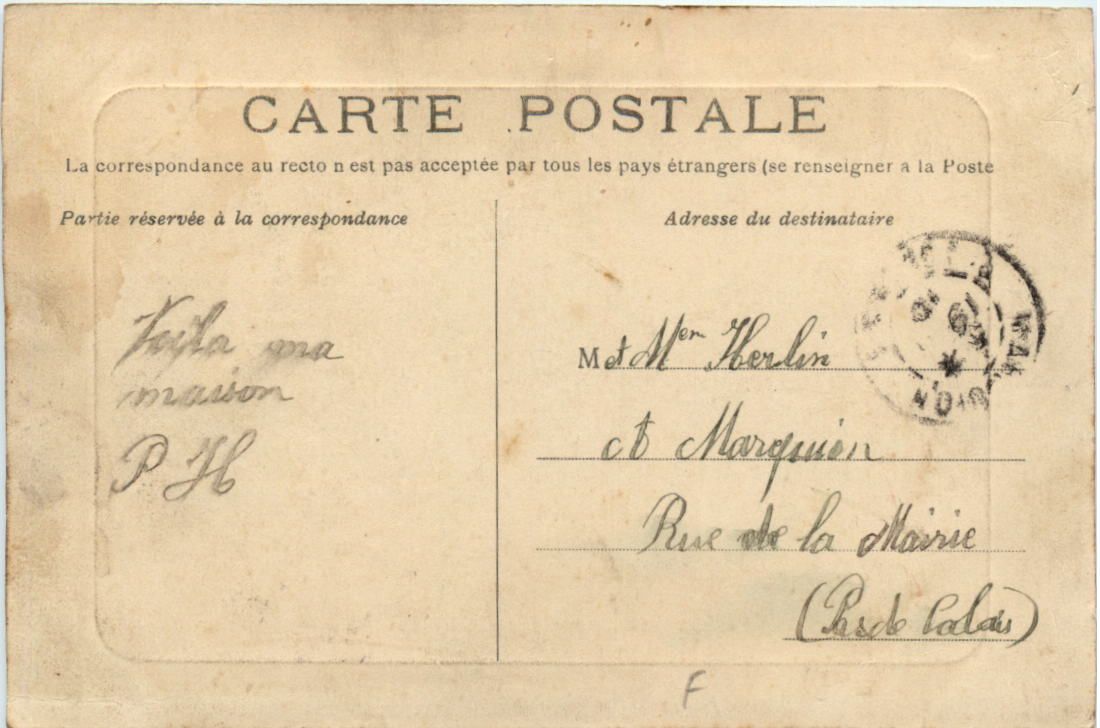 CARTE POSTALE
La correspondance au recto n est pas acceptée par tous les pays étrangers (se renseigner a la Poste
Partie réservée à la correspondance
Adresse du destinataire
Voila ma
maison
P H
M et Mme Herlin
A Marquion
Rue de la Mairie
(Pas de Calais)
F